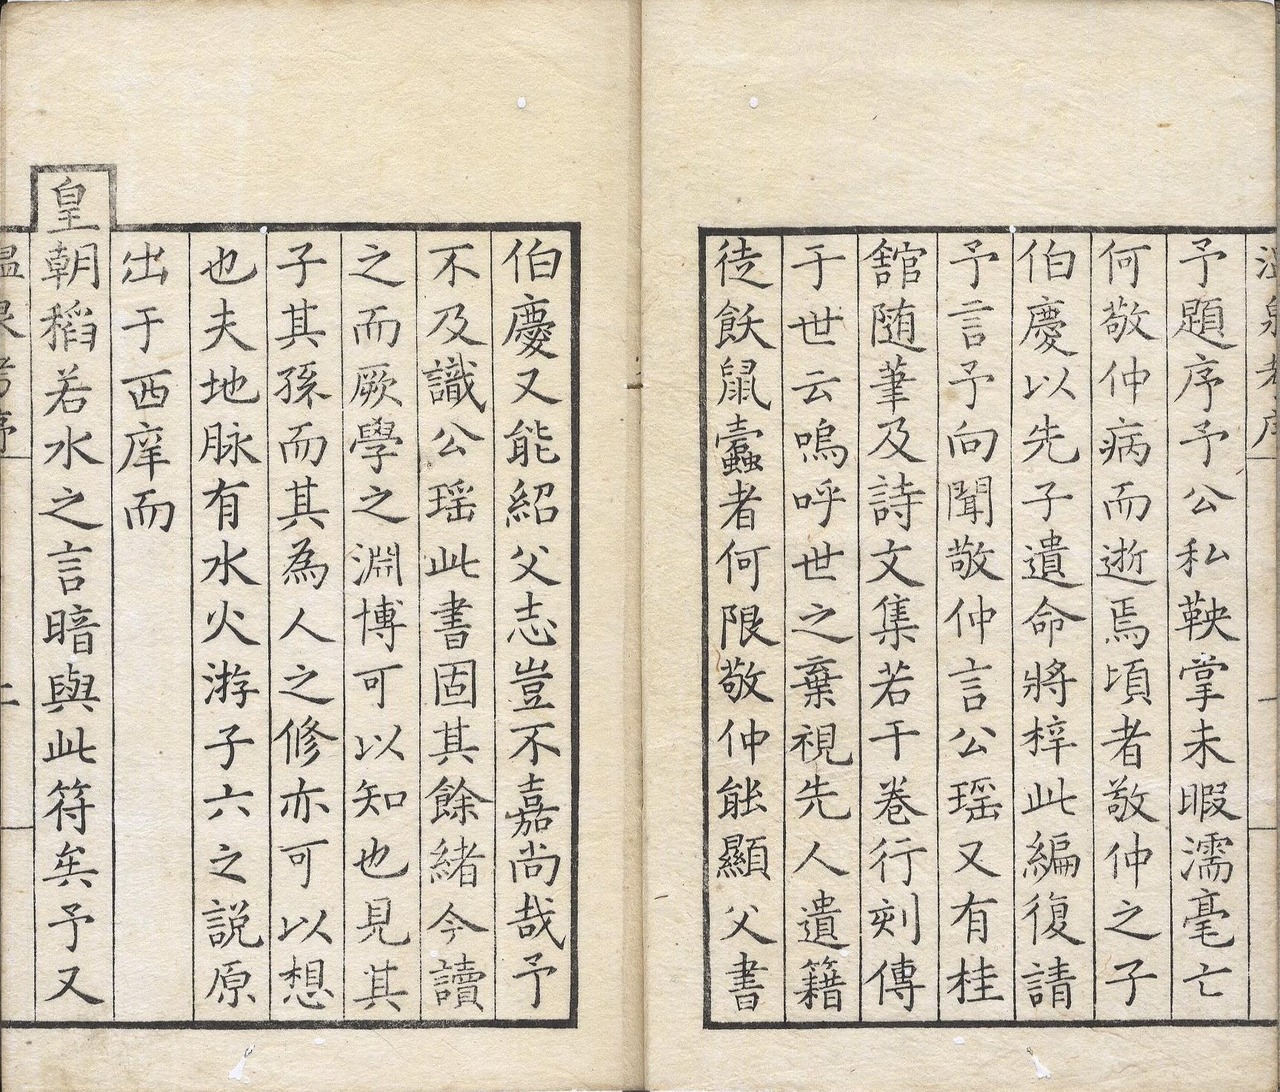 予題序予公私鞅掌未暇濡毫亡
何敬仲病而逝焉頃者敬仲之子
伯慶以先子遺命將梓此編復請
予言予向聞敬仲言公瑶又有桂
舘随筆及詩文集若干巻行刻傳
于世云嗚呼世之棄視先人遺籍
徒飫鼠蠹者何限敬仲能顯父書
伯慶又能紹父志豈不嘉尚哉予
不及識公瑶此書固其餘緒今讀
之而厥學之淵博可以知也見其
子其孫而其為人之修亦可以想
也夫地脉有水火游子六之説原
出于西庠而
皇朝稻若水之言暗與此符矣予又